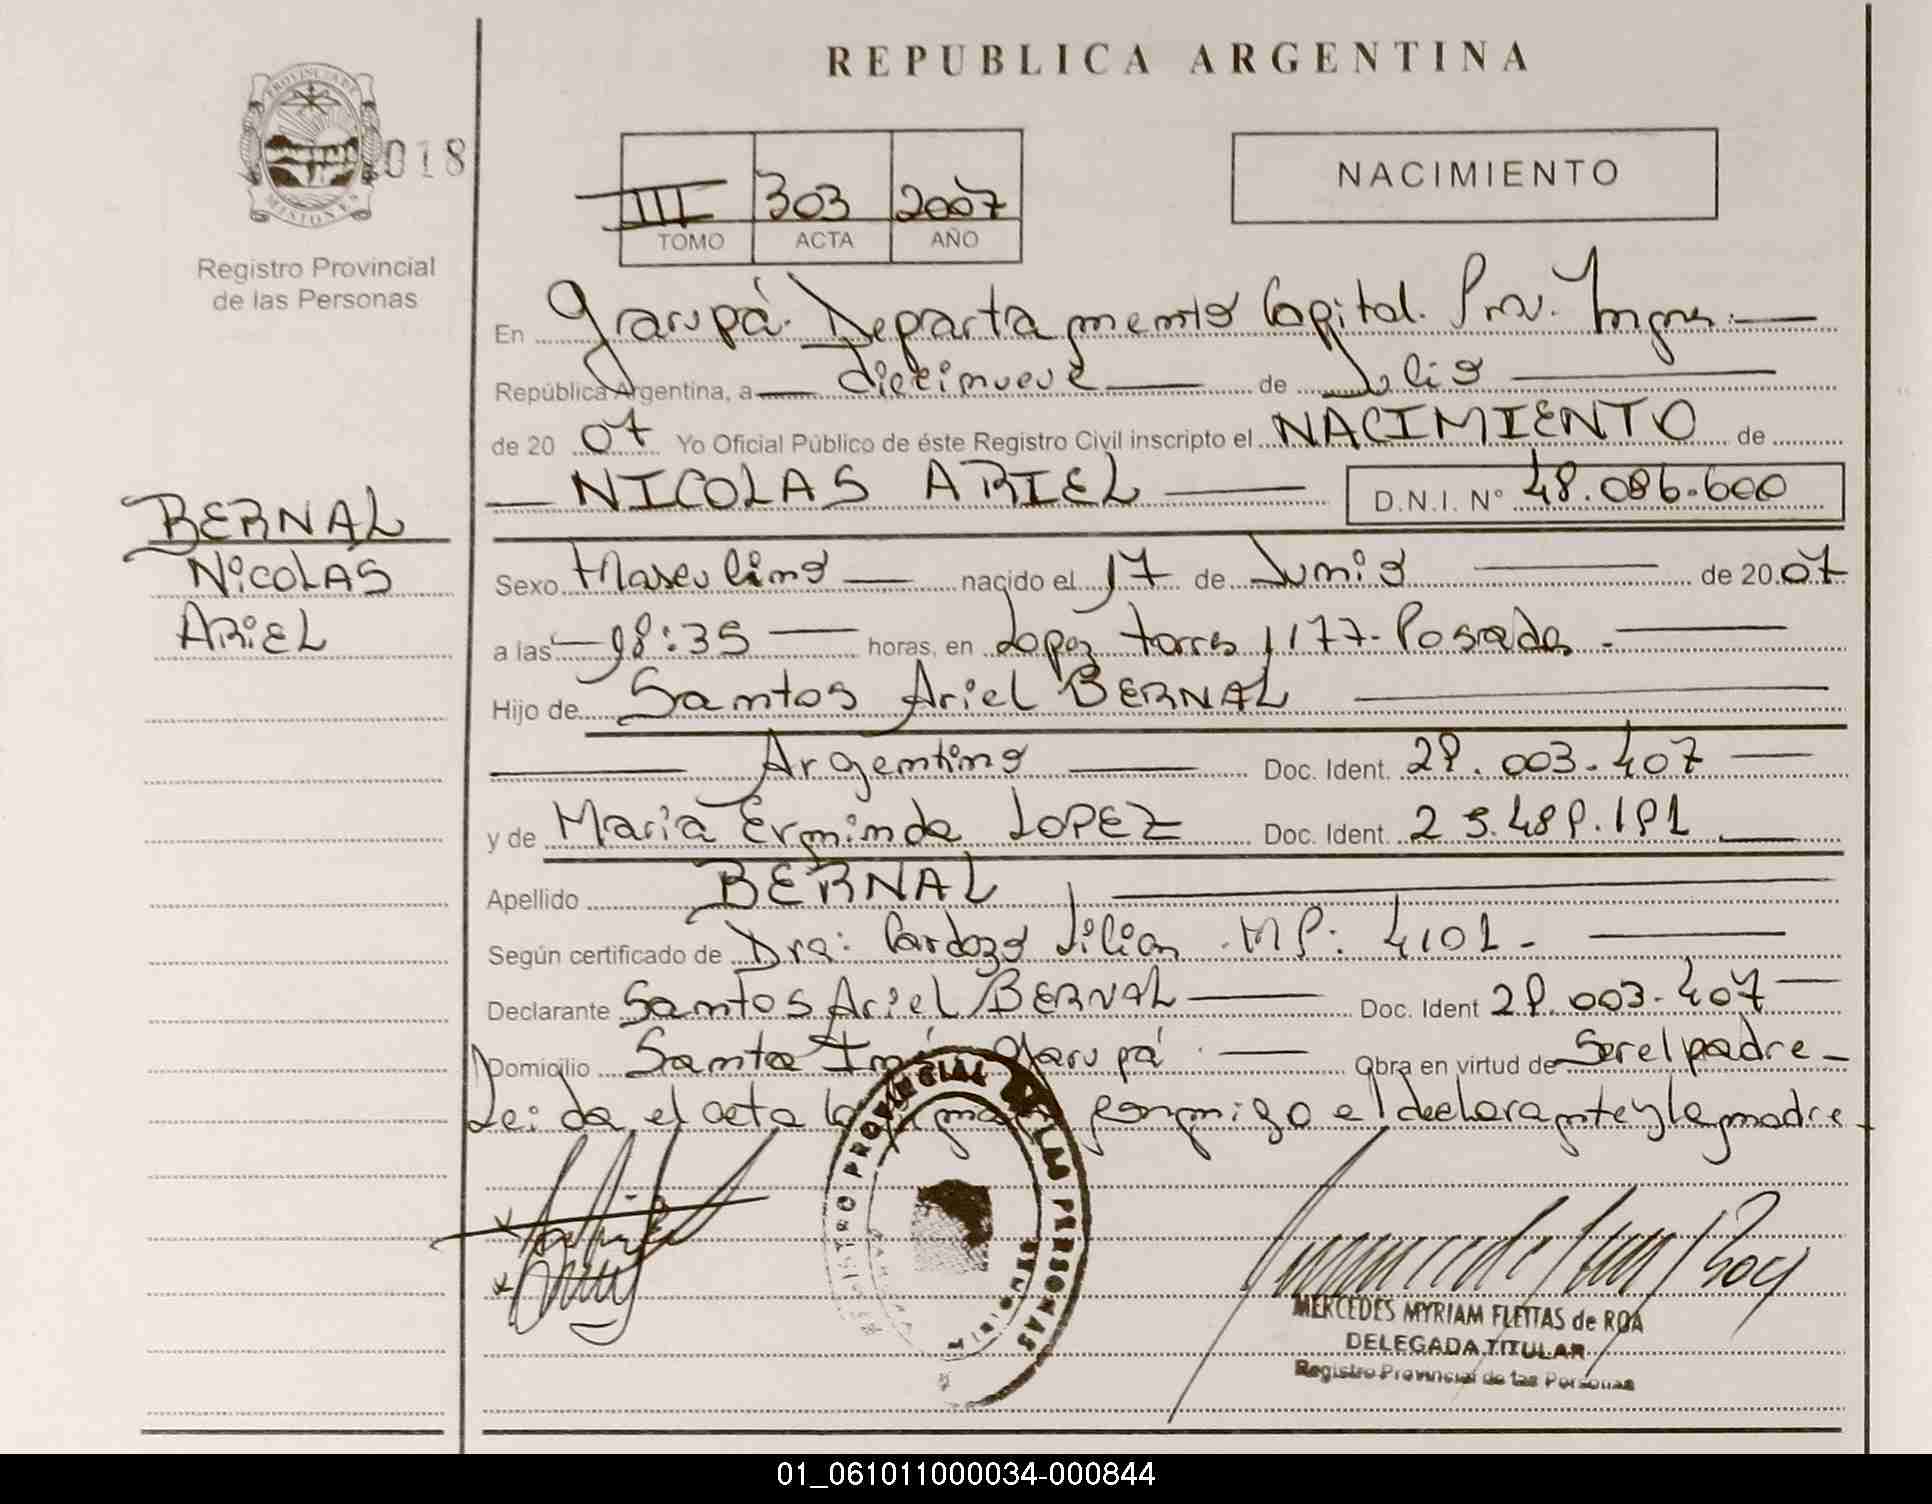 REPUBLICA ARGENTINA
PROVINCIA DE
MISIONES
018
Registro Provincial
de las Personas
III 303 2007
TOMO ACTA AÑO
NACIMIENTO
En Garupá. Departamento Capital. Prov. Mnes.
República Argentina, a diecinueve de Julio
de 20 07 Yo Oficial Público de éste Registro Civil inscripto el NACIMIENTO de
NICOLAS ARIEL D.N.I. N° 48.086.600
BERNAL
NICOLAS
ARIEL
Sexo Masculino nacido el 17 de Junio de 20 07
a las 08:35 horas, en Lopez Torres 1177 - Posadas -
Hijo de Santos Ariel BERNAL
Argentino Doc. Ident. 29.003.407
y de Maria Erminda LOPEZ Doc. Ident. 25.489.191
Apellido BERNAL
Según certificado de Dra: Cardozo Lilian MP: 4101 -
Declarante Santos Ariel BERNAL Doc. Ident 29.003.407
Domicilio Santa Inés Garupá Obra en virtud de Ser el padre -
Leida el acta la conmigo el declarante y la madre
REGISTRO PROVINCIAL DE LAS PERSONAS
MERCEDES MYRIAM FLEITAS de ROA
DELEGADA TITULAR
Registro Provincial de las Personas
01_061011000034-000844